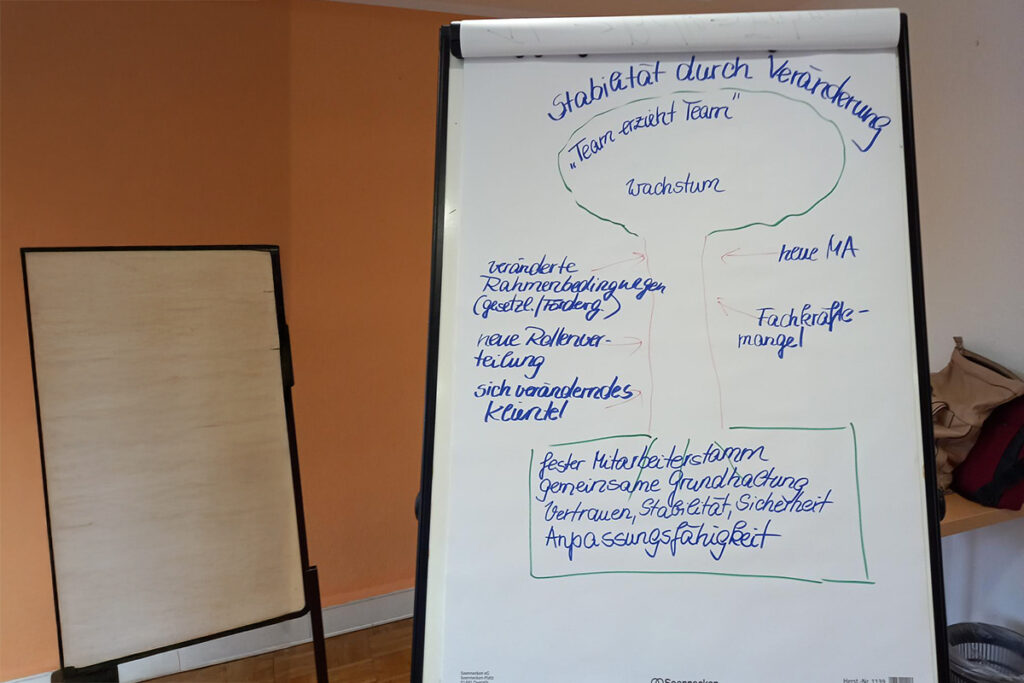 Stabilität durch Veränderung
"Team erzieht Team"
Wachstum
veränderte
Rahmenbedingungen
(gesetzl./Förderg.)
neue Rollenver-
teilung
sich veränderndes
Klientel
neue MA
Fachkräfte-
mangel
fester Mitarbeiterstamm
gemeinsame Grundhaltung
Vertrauen, Stabilität, Sicherheit
Anpassungsfähigkeit
Soennecken eG
Soennecken-Platz
Soennecken